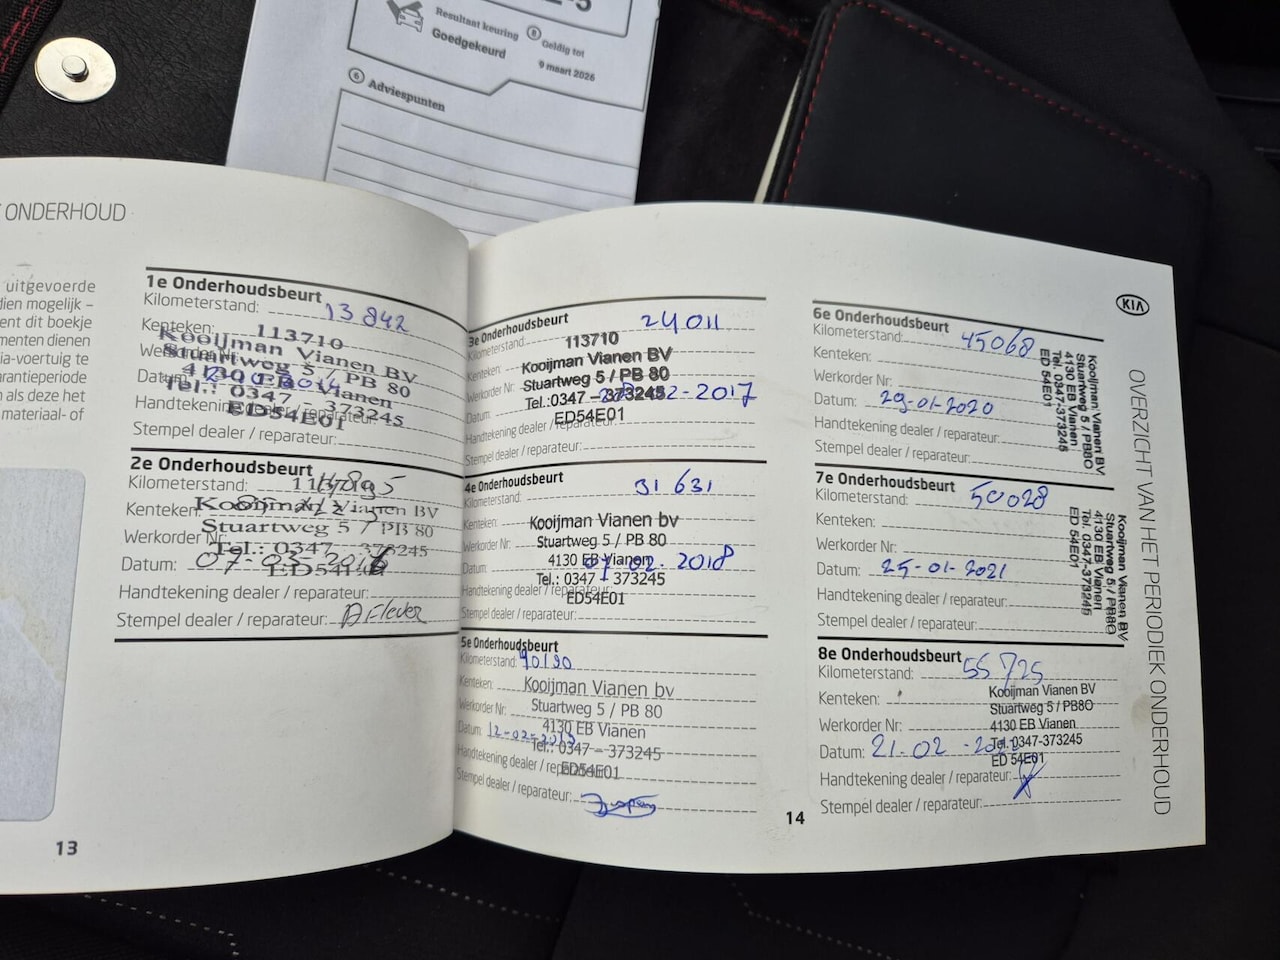 Resultaat keuring
Goedgekeurd
8 Geldig tot
9 maart 2026
6 Adviespunten
ONDERHOUD
uitgevoerde
dien mogelijk –
ent dit boekje
menten dienen
ia-voertuig te
arantieperiode
n als deze het
materiaal- of
1e Onderhoudsbeurt
Kilometerstand: 13842
Kenteken: 113710
Kooijman Vianen BV
Stuartweg 5 / PB 80
Datum:
Tel.: 0347 - 373245
Handtekening dealer / reparateur:
ED54E01
Stempel dealer / reparateur:
2e Onderhoudsbeurt
Kilometerstand:
Kenteken:
Kooijman Vianen BV
Stuartweg 5 / PB 80
Werkorder Nr:
Tel.: 0347 - 373245
Datum: 07-03-2016
Handtekening dealer / reparateur:
Stempel dealer / reparateur:
13
3e Onderhoudsbeurt
Kilometerstand: 24011
113710
Kenteken:
Kooijman Vianen BV
Werkorder Nr:
Stuartweg 5 / PB 80
Datum: 02-2017
Tel.:0347 – 373245
ED54E01
Handtekening dealer / reparateur:
Stempel dealer / reparateur:
4e Onderhoudsbeurt
Kilometerstand: 31 631
Kenteken:
Kooijman Vianen bv
Werkorder Nr:
Stuartweg 5 / PB 80
4130 EB Vianen
Datum: 07 02 2018
Tel.: 0347 – 373245
Handtekening dealer / reparateur:
ED54E01
Stempel dealer / reparateur:
5e Onderhoudsbeurt
Kilometerstand: 40190
Kenteken:
Kooijman Vianen bv
Werkorder Nr:
Stuartweg 5 / PB 80
4130 EB Vianen
Datum: 12-02-2019
Tel.: 0347 – 373245
Handtekening dealer / reparateur:
ED54E01
Stempel dealer / reparateur:
14
KIA
6e Onderhoudsbeurt
Kilometerstand: 45068
Kenteken:
Werkorder Nr:
Datum: 29-01-2020
Handtekening dealer / reparateur:
Stempel dealer / reparateur:
Kooijman Vianen BV
Stuartweg 5 / PB80
4130 EB Vianen
Tel. 0347-373245
ED 54E01
7e Onderhoudsbeurt
Kilometerstand: 50028
Kenteken:
Werkorder Nr:
Datum: 25-01-2021
Handtekening dealer / reparateur:
Stempel dealer / reparateur:
Kooijman Vianen BV
Stuartweg 5 / PB80
4130 EB Vianen
Tel. 0347-373245
ED 54E01
8e Onderhoudsbeurt
Kilometerstand: 55725
Kenteken:
Kooijman Vianen BV
Stuartweg 5 / PB80
Werkorder Nr:
4130 EB Vianen
Datum: 21-02
Tel. 0347-373245
ED 54E01
Handtekening dealer / reparateur:
Stempel dealer / reparateur:
OVERZICHT VAN HET PERIODIEK ONDERHOUD